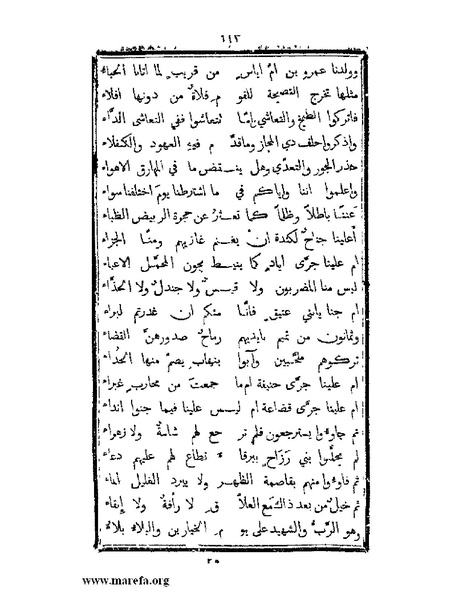 ١٤٣
وولدنا عمرو بن ام اياس من قريب لما اتانا الحباء
مثلها تخرج النصيحة للقو م فلاة من دونها افلاء
فاتركوا الطيخ والتعاشي وإما تتعاشوا ففي التعاشي الداء
واذكروا حلف ذي المجاز وما قدم فيه العهود والكفلاء
حذر الجور والتعدي وهل ينقض ما في المهارق الاهواء
واعلموا اننا واياكم في ما اشترطنا يوم اختلفنا سواء
عننا باطلاً وظلماً كما تعتر عن حجرة الربيض الظباء
أعلينا جناح كندة ان يغنم غازيهم ومنا الجزاء
ام علينا جرى اياد كما ينيط بجوز المحمل الاعباء
ليس منا المضربون ولا قيس ولا جندل ولا الحذاء
ام جنايا بني عتيق فانا منكم ان غدرتم لبراء
وثمانون من تميم بايديهم رماح صدورهن القضاء
تركوهم ملحبين وآبوا بنهاب يصم منها الحداء
ام علينا جرى حنيفة ام ما جمعت من محارب غبراء
ام علينا جرى قضاعة ام ليس علينا فيما جنوا انداء
ثم جاؤا يسترجعون فلم تر جع لهم شامة ولا زهراء
لم يحلوا بني رزاح ببرقا ء نطاع لهم عليهم دعاء
ثم فاؤا منهم بقاصمة الظهر ولا يبرد الغليل الماء
ثم خيل من بعد ذاك مع الغلاق لا رأفة ولا إبقاء
وهو الرب والشهيد على يو م الحيارين والبلاء بلاء
٢٠
www.marefa.org